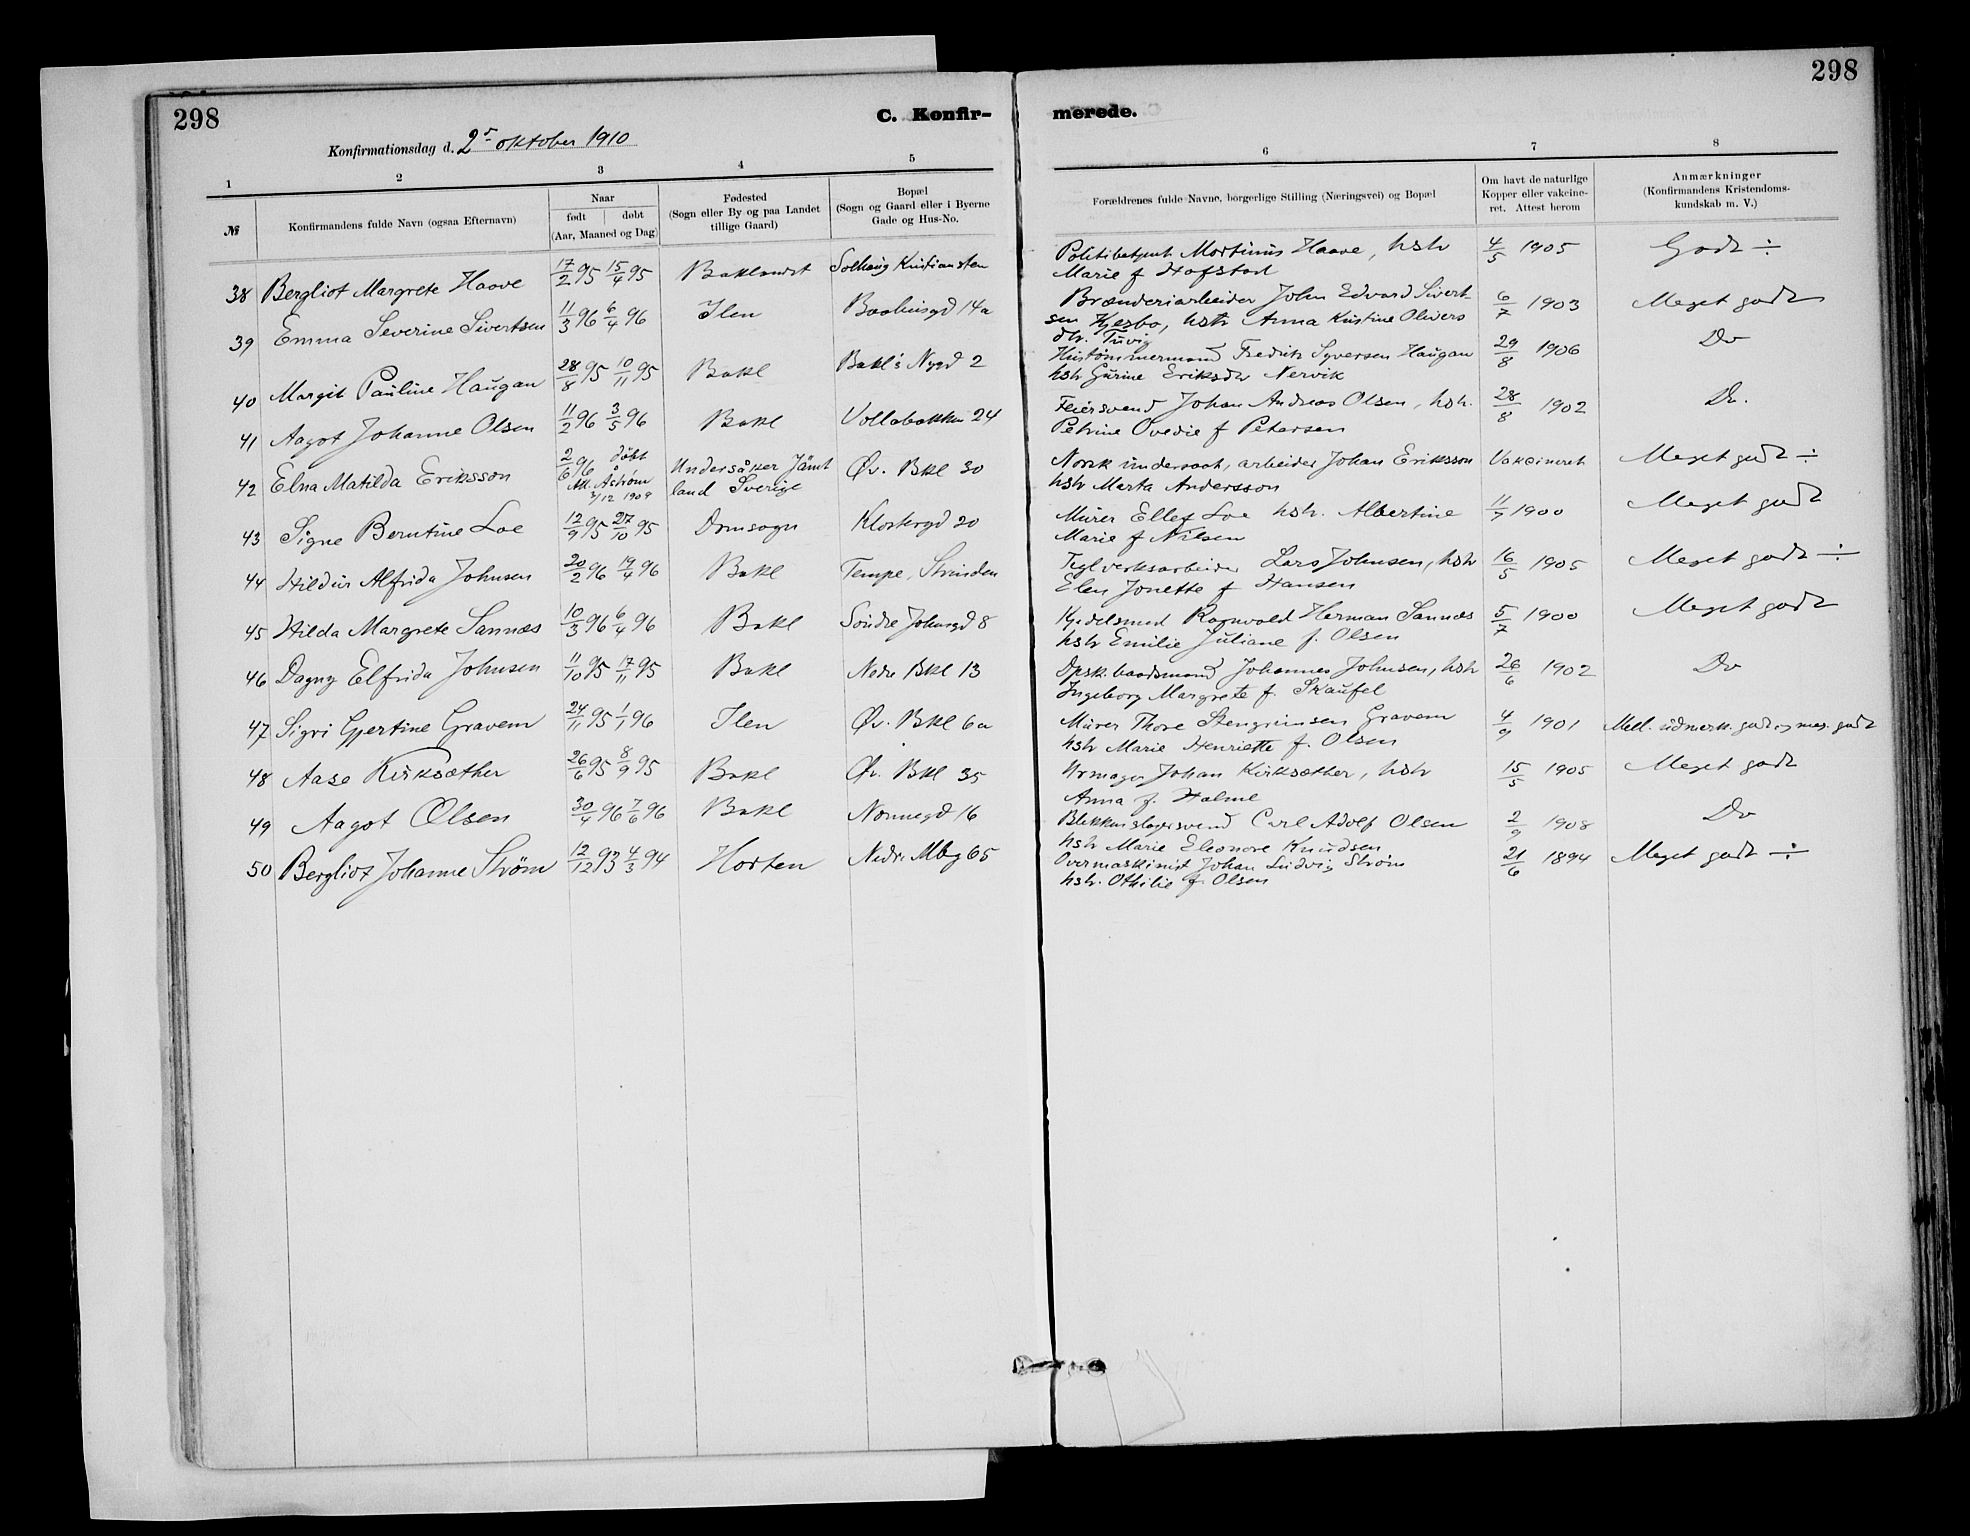 298
C. Konfir-
merede.
298
Konfirmationsdag d. 2 oktober 1910
1 2 3 4 5 6 7 8
№
Konfirmandens fulde Navn (ogsaa Efternavn)
Naar
født døbt
(Aar, Maaned og Dag)
Fødested
(Sogn eller By og paa Landet
tillige Gaard)
Bopæl
(Sogn og Gaard eller i Byerne
Gade og Hus-No.
Forældrenes fulde Navne, borgerlige Stilling (Næringsvei) og Bopæl
Om havt de naturlige
Kopper eller vakcine-
ret. Attest herom
Anmærkninger
(Konfirmandens Kristendoms-
kundskab m. V.)
38 Bergliot Margrete Haave 17/2 95 15/4 95 Baklandet Solhaug Kristiansten Politibetjent Martinus Haave, hstr 4/5 1905 Godt ÷
Marie f Hofstad
39 Emma Severine Sivertsen 11/3 96 6/4 96 Ilen Baahusgd 14a Brænderiarbeider John Edvard Sivert- 6/7 1903 Meget godt
sen Kjesbo, hstr Anna Kristine Olivers
dtr.
40 Margit Pauline Haugan 28/8 95 10/11 95 Bakl Bakl's Nygd 2 Hustømmermand Fredrik Syversen Haugan 29/8 1906 Do
hstr Gurine Eriksdtr Nervik
41 Aagot Johanne Olsen 11/2 96 3/5 96 Bakl Vollabakken 24 Feiersvend Johan Andreas Olsen, hstr. 28/8 1902 Do.
Petrine Ovedie f Petersen
42 Elna Matilda Eriksson 2/6 96 døbt Undersåker Jämt Øv. Bkl 30 Norsk undersaat, arbeider Johan Eriksson Vakcineret Meget godt ÷
Åström land Sverige hstr Marta Andersson
3/12 1909
43 Signe Berntine Loe 12/9 95 27/10 95 Domsogn Klostergd 20 Murer Ellef Loe hstr. Albertine 11/7 1900 Meget godt
Marie f Nilsen
44 Hildur Alfrida Johnsen 20/2 96 19/4 96 Bakl Tempe, Strinden Teglverksarbeider Lars Johnsen, hstr 16/5 1905 Meget godt ÷
Elen Jonette f Hansen
45 Hilda Margrete Sannæs 10/3 96 6/4 96 Bakl Søndre Johusgd 8 Kjedelsmed Ragnvald Herman Sannæs 5/7 1900 Meget godt
hstr Emilie Juliane f. Olsen
46 Dagny Elfrida Johnsen 11/10 95 17/11 95 Bakl Nedre Bkl 13 Dpsk. baadsmand Johannes Johnsen, hstr 26/6 1902 Do
Ingeborg Margrete f. Skaufel
47 Sigri Gjertine Gravem 24/11 95 1/1 96 Ilen Øv. Bkl 6a Murer Thore Stengrimsen Gravem 4/9 1901 Mell. udmerk. godt og meg. godt
hstr Marie Henriette f. Olsen
48 Aase Kirksæther 26/6 95 8/9 95 Bakl Øv. Bkl 35 Urmager Johan Kirksæther, hstr 15/5 1905 Meget godt
Anna f. Holme
49 Aagot Olsen 30/4 96 7/6 96 Bakl Nonnegd 16 Blikkenslagersvend Carl Adolf Olsen 2/9 1908 Do
hstr Marie Eleonore Knudsen
50 Bergliot Johanne Strøm 12/12 93 4/3 94 Horten Nedr. Mbg 65 Overmaskinist Johan Ludvig Strøm 21/6 1894 Meget godt ÷
hstr. Othilie f. Olsen